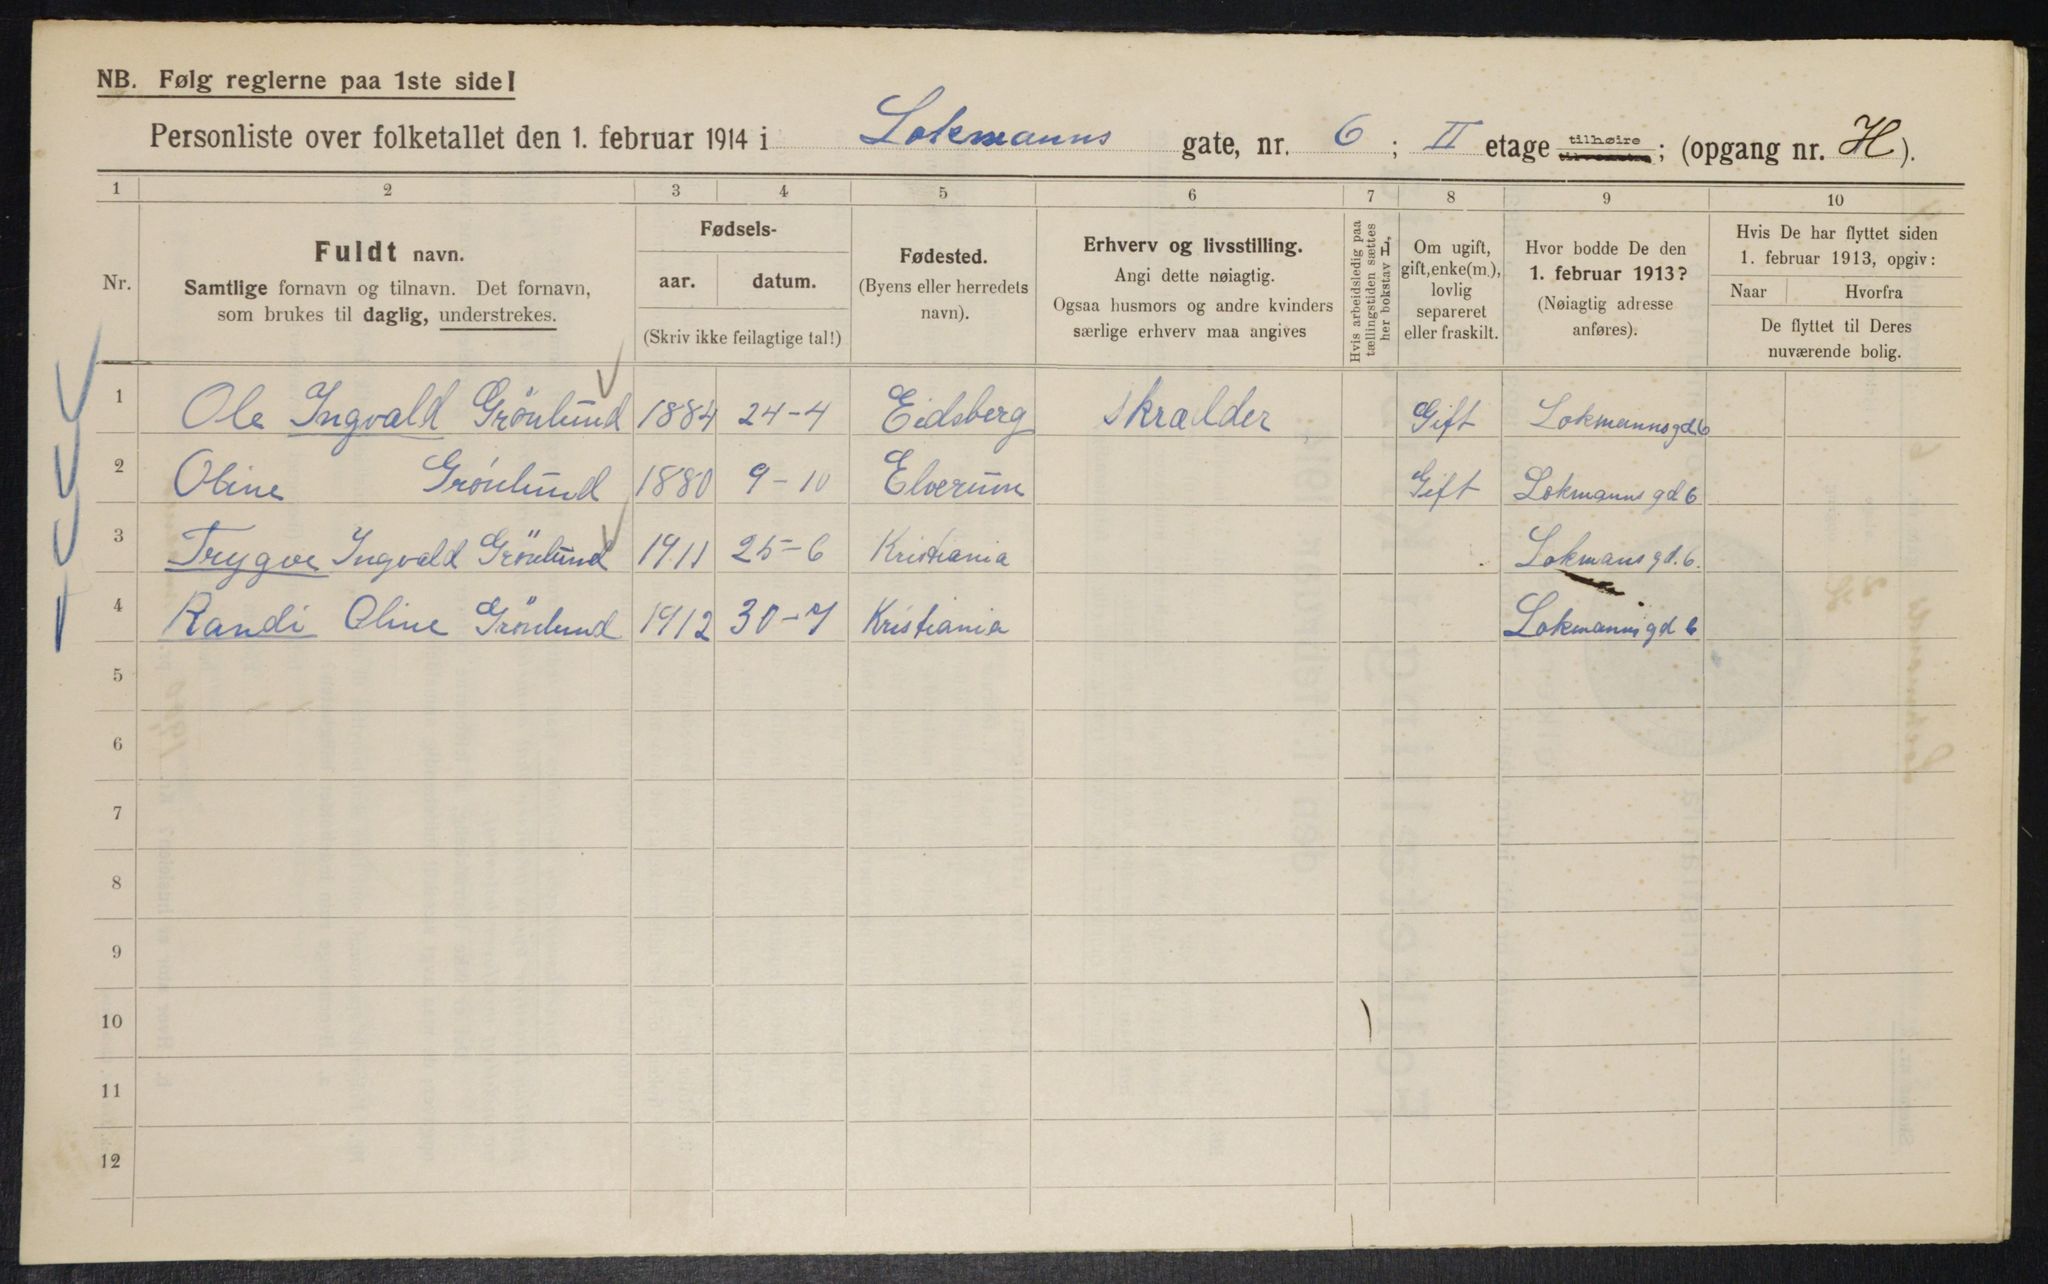 NB. Følg reglerne paa 1ste side!
Personliste over folketallet den 1. februar 1914 i Lokmanns gate, nr. 6 ; II etage tilhøire ; (opgang nr. H ).
1 2 3 4 5 6 7 8 9 10
Nr.
Fuldt navn.
Samtlige fornavn og tilnavn. Det fornavn,
som brukes til daglig, understrekes.
Fødsels-
aar. datum.
(Skriv ikke feilagtige tal!)
Fødested.
(Byens eller herredets
navn).
Erhverv og livsstilling.
Angi dette nøiagtig.
Ogsaa husmors og andre kvinders
særlige erhverv maa angives
Hvis arbeidsledig paa
tællingstiden sættes
her bokstav L.
Om ugift,
gift, enke(m.),
lovlig
separeret
eller fraskilt.
Hvor bodde De den
1. februar 1913?
(Nøiagtig adresse
anføres).
Hvis De har flyttet siden
1. februar 1913, opgiv:
Naar Hvorfra
De flyttet til Deres
nuværende bolig.
1 Ole Ingvald Grönlund 1884 24-4 Eidsberg skrædder Gift Lokmannsgd 6
2 Oline Grönlund 1880 9-10 Elverum Gift Lokmanns gd 6
3 Trygve Ingvald Grönlund 1911 25-6 Kristiania Lokmans gd. 6.
4 Randi Oline Grönlund 1912 30-7 Kristiania Lokmanns gd 6
5
6
7
8
9
10
11
12